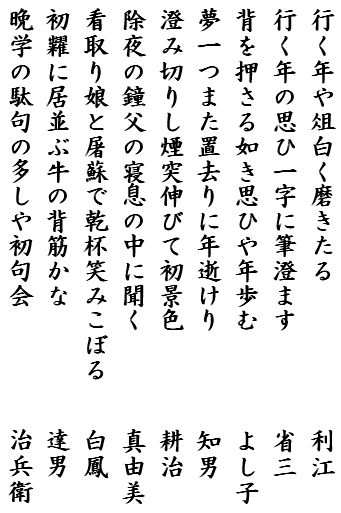 行く年や俎白く磨きたる　利江
行く年の思ひ一字に筆澄ます　省三
背を押さる如き思ひや年歩む　よし子
夢一つまた置去りに年逝けり　知男
澄み切りし煙突伸びて初景色　耕治
除夜の鐘父の寝息の中に聞く　真由美
看取り娘と屠蘇で乾杯笑みこぼる　白鳳
初糶に居並ぶ牛の背筋かな　達男
晩学の駄句の多しや初句会　治兵衛